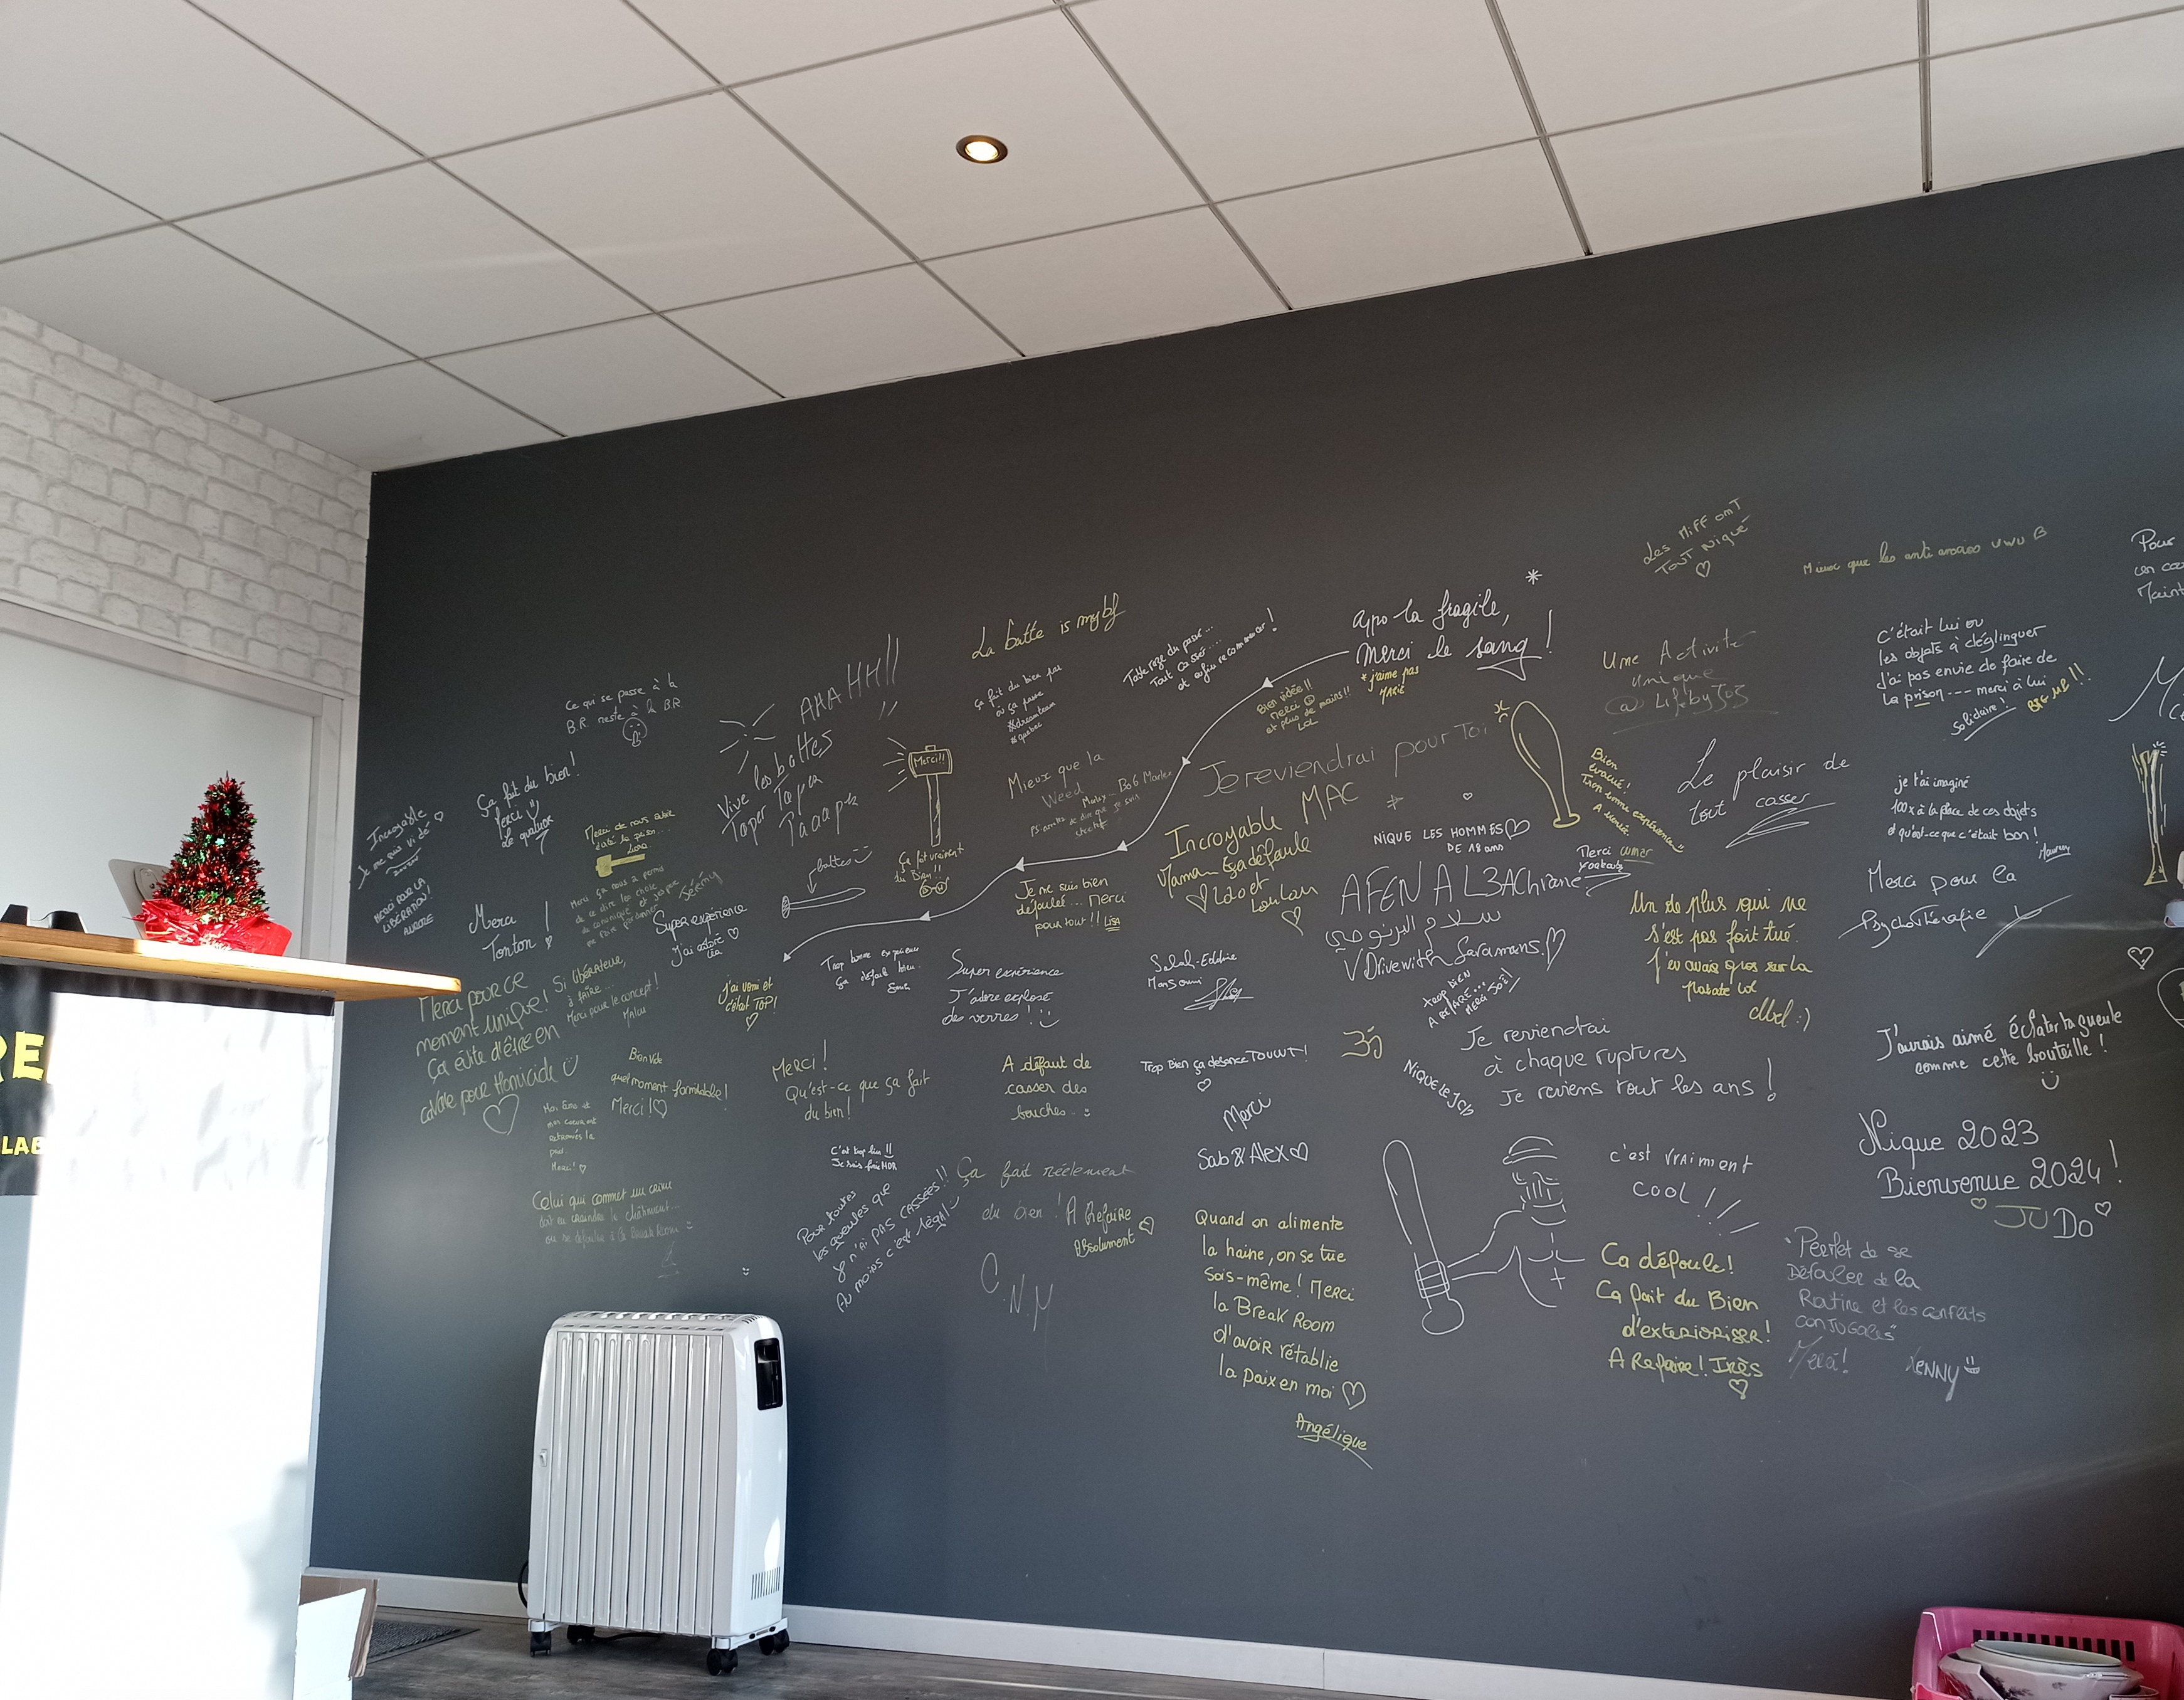 Les Miff ont
Tout Niqué
Mieux que les anti
UWU
Pour
Maint
La batte is my bf
Table rase du passé...
Tout cassé...
et enfin recommencer!
Appo la fragile,
Merci le sang !
* j'aime pas
Marie
Bien idée !!
Merci
et plus de mains !!
Lol
Ça fait du bien par
où ça passe
#dreamteam
#quebec
Une Activité
unique
@ Lifebyjoz
C'était lui ou
les objets à déglinguer
J'ai pas envie de faire de
la prison --- merci à lui
Solidaire !
BIG UP !!
Ce qui se passe à la
B.R. reste à la B.R
AHAHH!!
Vive les battes
Taper Tapa
Taaapé
Merci!!
Ça fait vraiment
du Bien !!
Mieux que la
Weed
Bob Marley
Je reviendrai pour toi
Incroyable MAC
Maman ça défoule
Lalo et
LouLou
NIQUE LES HOMMES
DE 18 ans
Bien
évacué !
Trop bonne expérience
A venir
Le plaisir de
tout casser
je t'ai imaginé
100x à la place de ces objets
et qu'est-ce que c'était bon !
Merci pour la
Psychothérapie
Incroyable
Je me suis vidé
MERCI POUR LA
LIBÉRATION!
AURORE
Ça fait du bien!
Merci
Le quatuor
Merci de nous éviter
la prison...
Merci ça nous a permis
de se dire les choses
de communiquer et
Jérémy
Merci
Tonton !
Super expérience
J'ai adoré
Léa
battes
Je me suis bien
défoulée... Merci
pour tout !! Lisa
AFEN A L3AChrane
سلام البرنوصي
VDrivewith Saramans.
Merci
Un de plus qui ne
s'est pas fait tué.
J'en avais gros sur la
patate lol
Abel :)
Merci pour ce
moment unique!
Ça évite d'être en
cavale pour Homicide
Si libérateur,
à faire...
Merci pour le concept !
Malau
J'ai vomi et
c'était TOP!
Trop bonne expérience
Ça défoule bien.
Super expérience
J'adore explosé
des verres !
Salah-Eddine
Mansouri
trop bien
A REFAIRE...
MERCI SOEÏ!
Je reviendrai
à chaque ruptures
Je reviens tout les ans !
NIQUE LE JCB
J'aurais aimé éclater ta gueule
comme cette bouteille !
Bien vidé
quel moment formidable!
Merci !
Mon âme et
mon coeur ont
retrouvés la
paix.
Merci !
Merci !
Qu'est-ce que ça fait
du bien !
A défaut de
casser des
bouches..
Trop Bien ça défonce TOUUUT!
Merci
Sab & Alex
c'est vraiment
cool !!
Nique 2023
Bienvenue 2024 !
JUDO
Celui qui commet un crime
doit en craindre le châtiment...
ou se défoule à la Break Room
C'est trop bien !!
Je suis fan MDR
Pour toutes
les gueules que
je n'ai PAS CASSÉES !!
Au moins c'est légal
Ça fait réelement
du bien ! A Refaire
Absolument
C.N.Y
Quand on alimente
la haine, on se tue
sois-même ! Merci
la Break Room
d'avoir rétablie
la paix en moi
Angélique
Ca défoule!
Ca fait du Bien
d'exterioriser!
A Refaire! Inès
"Permet de se
Défouler de la
Routine et les conflits
conjugales"
Merci! KENNY
RE
LAB